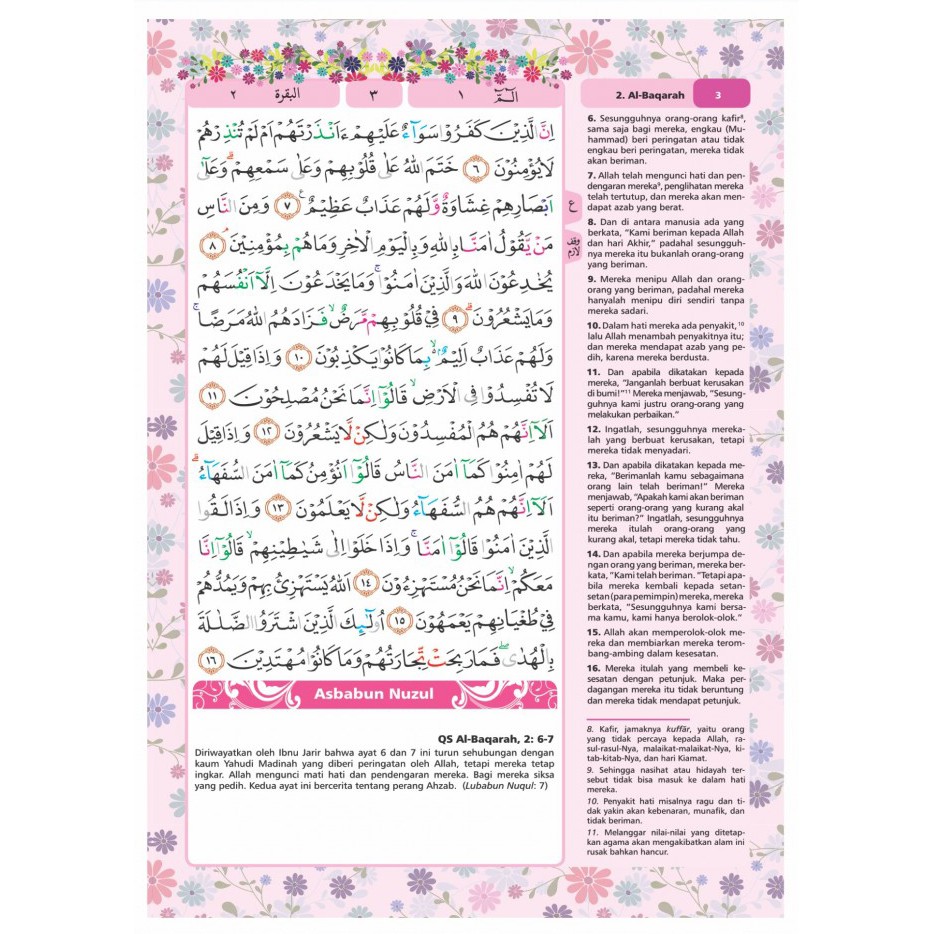 الۤمّۤ ١
٣
البقرة ٢
اِنَّ الَّذِيْنَ كَفَرُوْا سَوَاۤءٌ عَلَيْهِمْ ءَاَنْذَرْتَهُمْ اَمْ لَمْ تُنْذِرْهُمْ
لَا يُؤْمِنُوْنَ ٦ خَتَمَ اللّٰهُ عَلٰى قُلُوْبِهِمْ وَعَلٰى سَمْعِهِمْ ۗ وَعَلٰٓى
اَبْصَارِهِمْ غِشَاوَةٌ وَّلَهُمْ عَذَابٌ عَظِيْمٌ ٧ وَمِنَ النَّاسِ
مَنْ يَّقُوْلُ اٰمَنَّا بِاللّٰهِ وَبِالْيَوْمِ الْاٰخِرِ وَمَا هُمْ بِمُؤْمِنِيْنَ ۘ ٨
يُخٰدِعُوْنَ اللّٰهَ وَالَّذِيْنَ اٰمَنُوْا ۚ وَمَا يَخْدَعُوْنَ اِلَّآ اَنْفُسَهُمْ
وَمَا يَشْعُرُوْنَ ۗ ٩ فِيْ قُلُوْبِهِمْ مَّرَضٌۙ فَزَادَهُمُ اللّٰهُ مَرَضًا ۚ
وَلَهُمْ عَذَابٌ اَلِيْمٌ ۢ ەۙ بِمَا كَانُوْا يَكْذِبُوْنَ ١٠ وَاِذَا قِيْلَ لَهُمْ
لَا تُفْسِدُوْا فِى الْاَرْضِۙ قَالُوْٓا اِنَّمَا نَحْنُ مُصْلِحُوْنَ ١١
اَلَآ اِنَّهُمْ هُمُ الْمُفْسِدُوْنَ وَلٰكِنْ لَّا يَشْعُرُوْنَ ١٢ وَاِذَا قِيْلَ
لَهُمْ اٰمِنُوْا كَمَآ اٰمَنَ النَّاسُ قَالُوْٓا اَنُؤْمِنُ كَمَآ اٰمَنَ السُّفَهَاۤءُ ۗ
اَلَآ اِنَّهُمْ هُمُ السُّفَهَاۤءُ وَلٰكِنْ لَّا يَعْلَمُوْنَ ١٣ وَاِذَا لَقُوا
الَّذِيْنَ اٰمَنُوْا قَالُوْٓا اٰمَنَّا ۚ وَاِذَا خَلَوْا اِلٰى شَيٰطِيْنِهِمْۙ قَالُوْٓا اِنَّا
مَعَكُمْۙ اِنَّمَا نَحْنُ مُسْتَهْزِءُوْنَ ١٤ اَللّٰهُ يَسْتَهْزِئُ بِهِمْ وَيَمُدُّهُمْ
فِيْ طُغْيَانِهِمْ يَعْمَهُوْنَ ١٥ اُولٰۤىِٕكَ الَّذِيْنَ اشْتَرَوُا الضَّلٰلَةَ
بِالْهُدٰىۖ فَمَا رَبِحَتْ تِّجَارَتُهُمْ وَمَا كَانُوْا مُهْتَدِيْنَ ١٦
ع
وقف لازم
Asbabun Nuzul
QS Al-Baqarah, 2: 6-7
Diriwayatkan oleh Ibnu Jarir bahwa ayat 6 dan 7 ini turun sehubungan dengan
kaum Yahudi Madinah yang diberi peringatan oleh Allah, tetapi mereka tetap
ingkar. Allah mengunci mati hati dan pendengaran mereka. Bagi mereka siksa
yang pedih. Kedua ayat ini bercerita tentang perang Ahzab. (Lubabun Nuqul: 7)
2. Al-Baqarah 3
6. Sesungguhnya orang-orang kafir⁸,
sama saja bagi mereka, engkau (Mu-
hammad) beri peringatan atau tidak
engkau beri peringatan, mereka tidak
akan beriman.
7. Allah telah mengunci hati dan pen-
dengaran mereka⁹, penglihatan mereka
telah tertutup, dan mereka akan men-
dapat azab yang berat.
8. Dan di antara manusia ada yang
berkata, "Kami beriman kepada Allah
dan hari Akhir," padahal sesungguh-
nya mereka itu bukanlah orang-orang
yang beriman.
9. Mereka menipu Allah dan orang-
orang yang beriman, padahal mereka
hanyalah menipu diri sendiri tanpa
mereka sadari.
10. Dalam hati mereka ada penyakit,¹⁰
lalu Allah menambah penyakitnya itu;
dan mereka mendapat azab yang pe-
dih, karena mereka berdusta.
11. Dan apabila dikatakan kepada
mereka, "Janganlah berbuat kerusakan
di bumi!"¹¹ Mereka menjawab, "Sesung-
guhnya kami justru orang-orang yang
melakukan perbaikan."
12. Ingatlah, sesungguhnya mereka-
lah yang berbuat kerusakan, tetapi
mereka tidak menyadari.
13. Dan apabila dikatakan kepada me-
reka, "Berimanlah kamu sebagaimana
orang lain telah beriman!" Mereka
menjawab, "Apakah kami akan beriman
seperti orang-orang yang kurang akal
itu beriman?" Ingatlah, sesungguhnya
mereka itulah orang-orang yang
kurang akal, tetapi mereka tidak tahu.
14. Dan apabila mereka berjumpa de-
ngan orang yang beriman, mereka ber-
kata, "Kami telah beriman. "Tetapi apa-
bila mereka kembali kepada setan-
setan (para pemimpin) mereka, mereka
berkata, "Sesungguhnya kami bersa-
ma kamu, kami hanya berolok-olok."
15. Allah akan memperolok-olok me-
reka dan membiarkan mereka terom-
bang-ambing dalam kesesatan.
16. Mereka itulah yang membeli ke-
sesatan dengan petunjuk. Maka per-
dagangan mereka itu tidak beruntung
dan mereka tidak mendapat petunjuk.
8. Kafir, jamaknya kuffār, yaitu orang
yang tidak percaya kepada Allah, ra-
sul-rasul-Nya, malaikat-malaikat-Nya, ki-
tab-kitab-Nya, dan hari Kiamat.
9. Sehingga nasihat atau hidayah ter-
sebut tidak bisa masuk ke dalam hati
mereka.
10. Penyakit hati misalnya ragu dan ti-
dak yakin akan kebenaran, munafik, dan
tidak beriman.
11. Melanggar nilai-nilai yang ditetap-
kan agama akan mengakibatkan alam ini
rusak bahkan hancur.